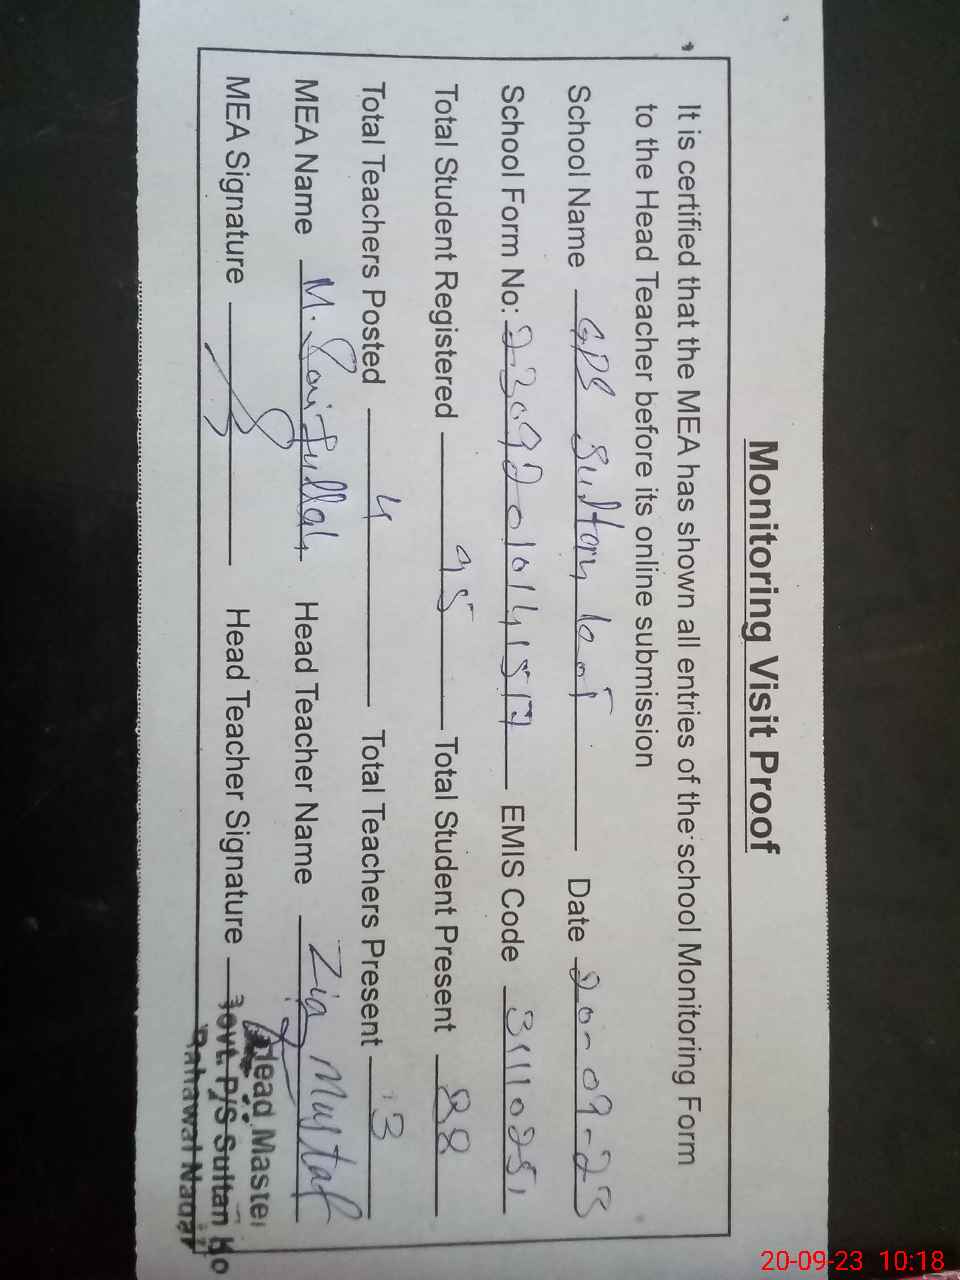 Monitoring Visit Proof
It is certified that the MEA has shown all entries of the school Monitoring Form
to the Head Teacher before its online submission
School Name GPS Sultan kot Date 20-09-23
School Form No: EMIS Code 31110251
Total Student Registered 95 Total Student Present 88
Total Teachers Posted 4 Total Teachers Present 3
MEA Name M. Saifullah Head Teacher Name Zia Mustaf
MEA Signature Head Teacher Signature
Head Master
Govt. P/S Sultan Ko
Bahawal Nagar
20-09-23 10:18